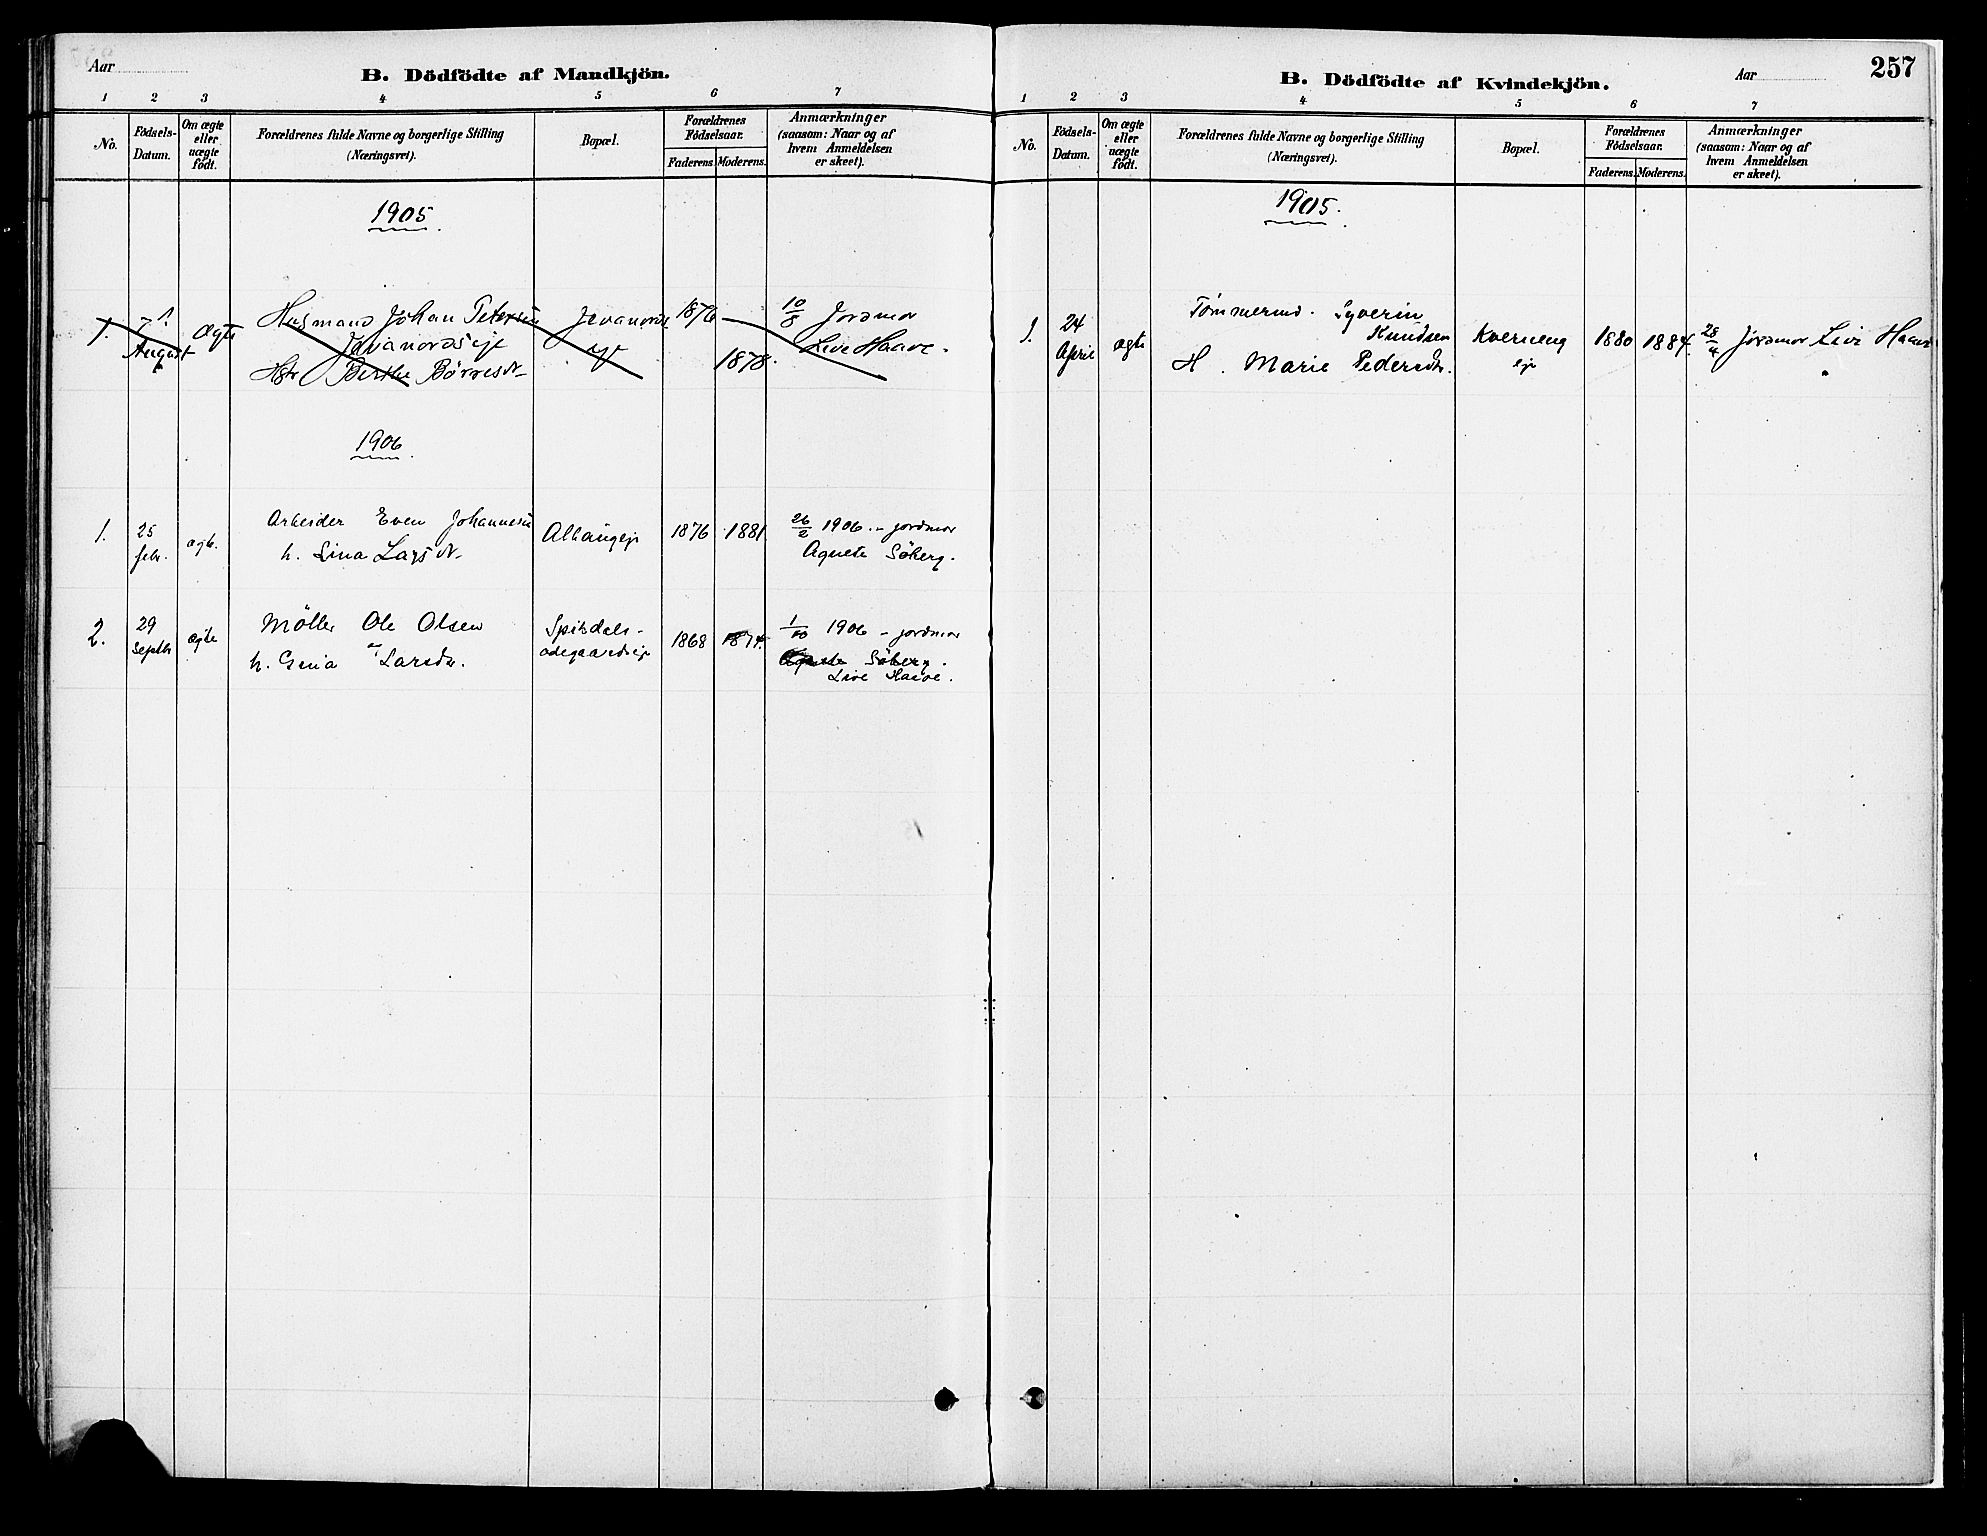 Aar
B. Dödfödte af Mandkjön.
1 2 3 4 5 6 7
No.
Födsels-Datum.
Om ægte eller uægte födt.
Forældrenes fulde Navne og borgerlige Stilling
(Næringsvei).
Bopæl.
Forældrenes Födselsaar.
Faderens. Moderens.
Anmærkninger
(saasom: Naar og af
hvem Anmeldelsen
er skeet).
1905
1. 7 August Ægte Husmand Johan Petersen
1876 10/8 Jordmor
Berthe Børresdtr 1878. Live Haave.
1906
1. 25 febr. ægte. Arbeider Even Johannesen 1876 1881. 26/2 1906. - jordmor
h. Lina Larsdtr Agnete Söberg.
2. 29 Septbr ægte Möller Ole Olsen Spitsdals- 1868 1874. 1/10 1906 - jordmor
h. Gina Larsdtr. ødegaardseje Agnete Söberg.
Live Haave.
B. Dödfödte af Kvindekjön.
Aar
257
1 2 3 4 5 6 7
No.
Födsels-Datum.
Om ægte eller uægte födt.
Forældrenes fulde Navne og borgerlige Stilling
(Næringsvei).
Bopæl.
Forældrenes Födselsaar.
Faderens. Moderens.
Anmærkninger
(saasom: Naar og af
hvem Anmeldelsen
er skeet).
1905.
1. 24 April ægte Tømmermd. Syverin
Knudsen Kverneng 1880 1884. 28/4 Jordmor Live Haave
H. Marie Pedersdtr. eje